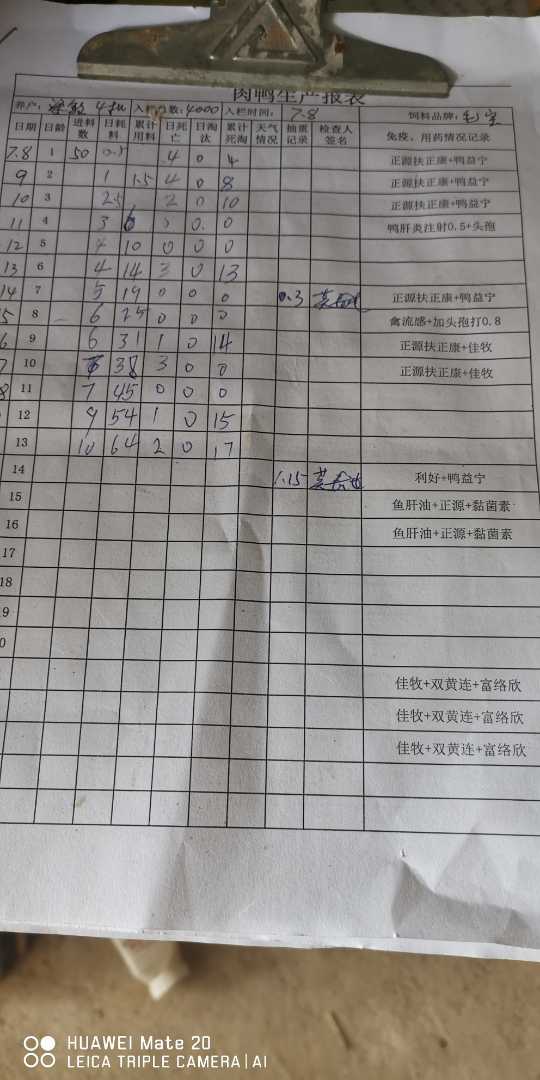 肉鸭生产报表
养户: 4批 入栏只数:4000 入栏时间: 7.8 饲料品牌:
日期 日龄 进料数 日耗料 累计用料 日死亡 日淘汰 累计死淘 天气情况 抽重记录 检查人签名 免疫、用药情况记录
7.8 1 50 0.5 4 0 4 正源扶正康+鸭益宁
9 2 1 1.5 4 0 8 正源扶正康+鸭益宁
10 3 2.5 2 0 10 正源扶正康+鸭益宁
11 4 3 6 0 0. 0 鸭肝炎注射0.5+头孢
12 5 4 10 0 0 0
13 6 4 14 3 0 13
14 7 5 19 0 0 0 0.3 正源扶正康+鸭益宁
5 8 6 25 0 0 0 禽流感+加头孢打0.8
6 9 6 31 1 0 14 正源扶正康+佳牧
7 10 38 3 0 0 正源扶正康+佳牧
8 11 7 45 0 0 0
12 9 54 1 0 15
13 10 64 2 0 17
14 1.15 利好+鸭益宁
15 鱼肝油+正源+黏菌素
16 鱼肝油+正源+黏菌素
17
18
9
0
佳牧+双黄连+富络欣
佳牧+双黄连+富络欣
佳牧+双黄连+富络欣
HUAWEI Mate 20
LEICA TRIPLE CAMERA | AI